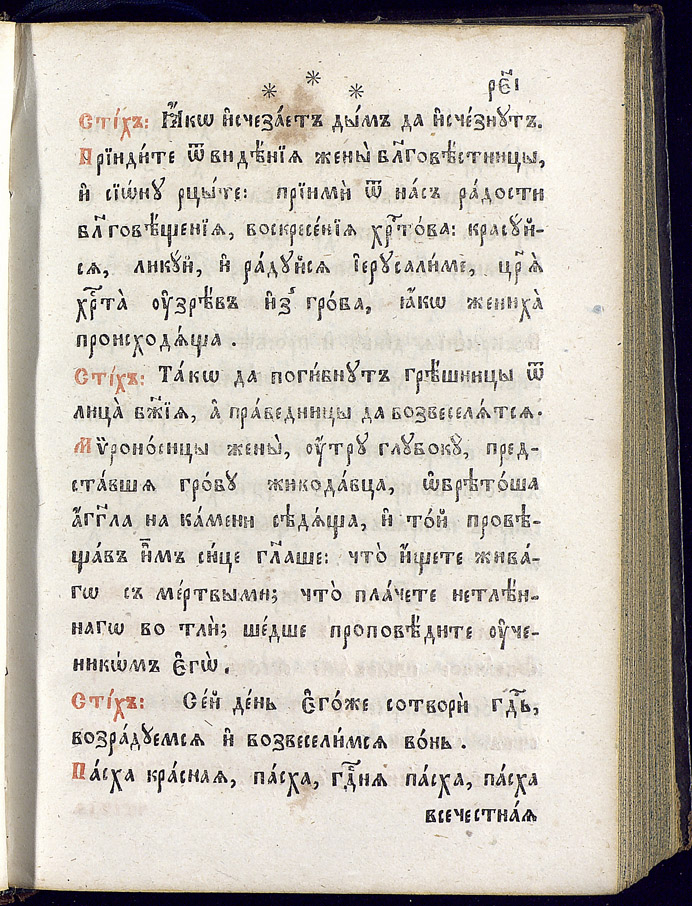 * * * р҃еі
Сті́хъ: Ꙗ҆́кѡ и҆счеза́етъ ды́мъ да и҆сче́знꙋтъ.
Прїиди́те ѿ видѣ́нїѧ жены̀ бл҃говѣ́стницы,
и҆ сїѡ́нꙋ рцы́те: прїимѝ ѿ на́съ ра́дости
бл҃говѣ́щенїѧ, воскресе́нїѧ хрⷭ҇то́ва: красꙋ́й-
сѧ, ликꙋ́й, и҆ ра́дꙋйсѧ і҆ерꙋсали́ме, цр҃ѧ̀
хрⷭ҇та̀ ᲂу҆зрѣ́въ и҆з̾ гро́ба, ꙗ҆́кѡ жениха̀
происходѧ́ща.
Сті́хъ: Та́кѡ да поги́бнꙋтъ грѣ́шницы ѿ
лица̀ бж҃їѧ, а҆ пра́ведницы да возвеселѧ́тсѧ.
Мѷроно́сицы жены̀, ᲂу҆́трꙋ глꙋбокꙋ̀, пред-
ста́вшѧ гро́бꙋ живода́вца, ѡ҆брѣто́ша
а҆́гг҃ла на ка́мени сѣдѧ́ща, и҆ то́й провѣ-
ща́въ и҆̀мъ си́це гл҃аше: что̀ и҆́щете жива́-
гѡ съ ме́ртвыми; что̀ пла́чете нетлѣ́н-
нагѡ во тлѝ; ше́дше проповѣ́дите ᲂу҆че-
никѡ́мъ є҆гѡ̀.
Сті́хъ: Се́й де́нь є҆го́же сотворѝ гдⷭ҇ь,
возра́дꙋемсѧ и҆ возвесели́мсѧ во́нь.
Па́сха кра́снаѧ, па́сха, гдⷭ҇нѧ па́сха, па́сха
всечестна́ѧ